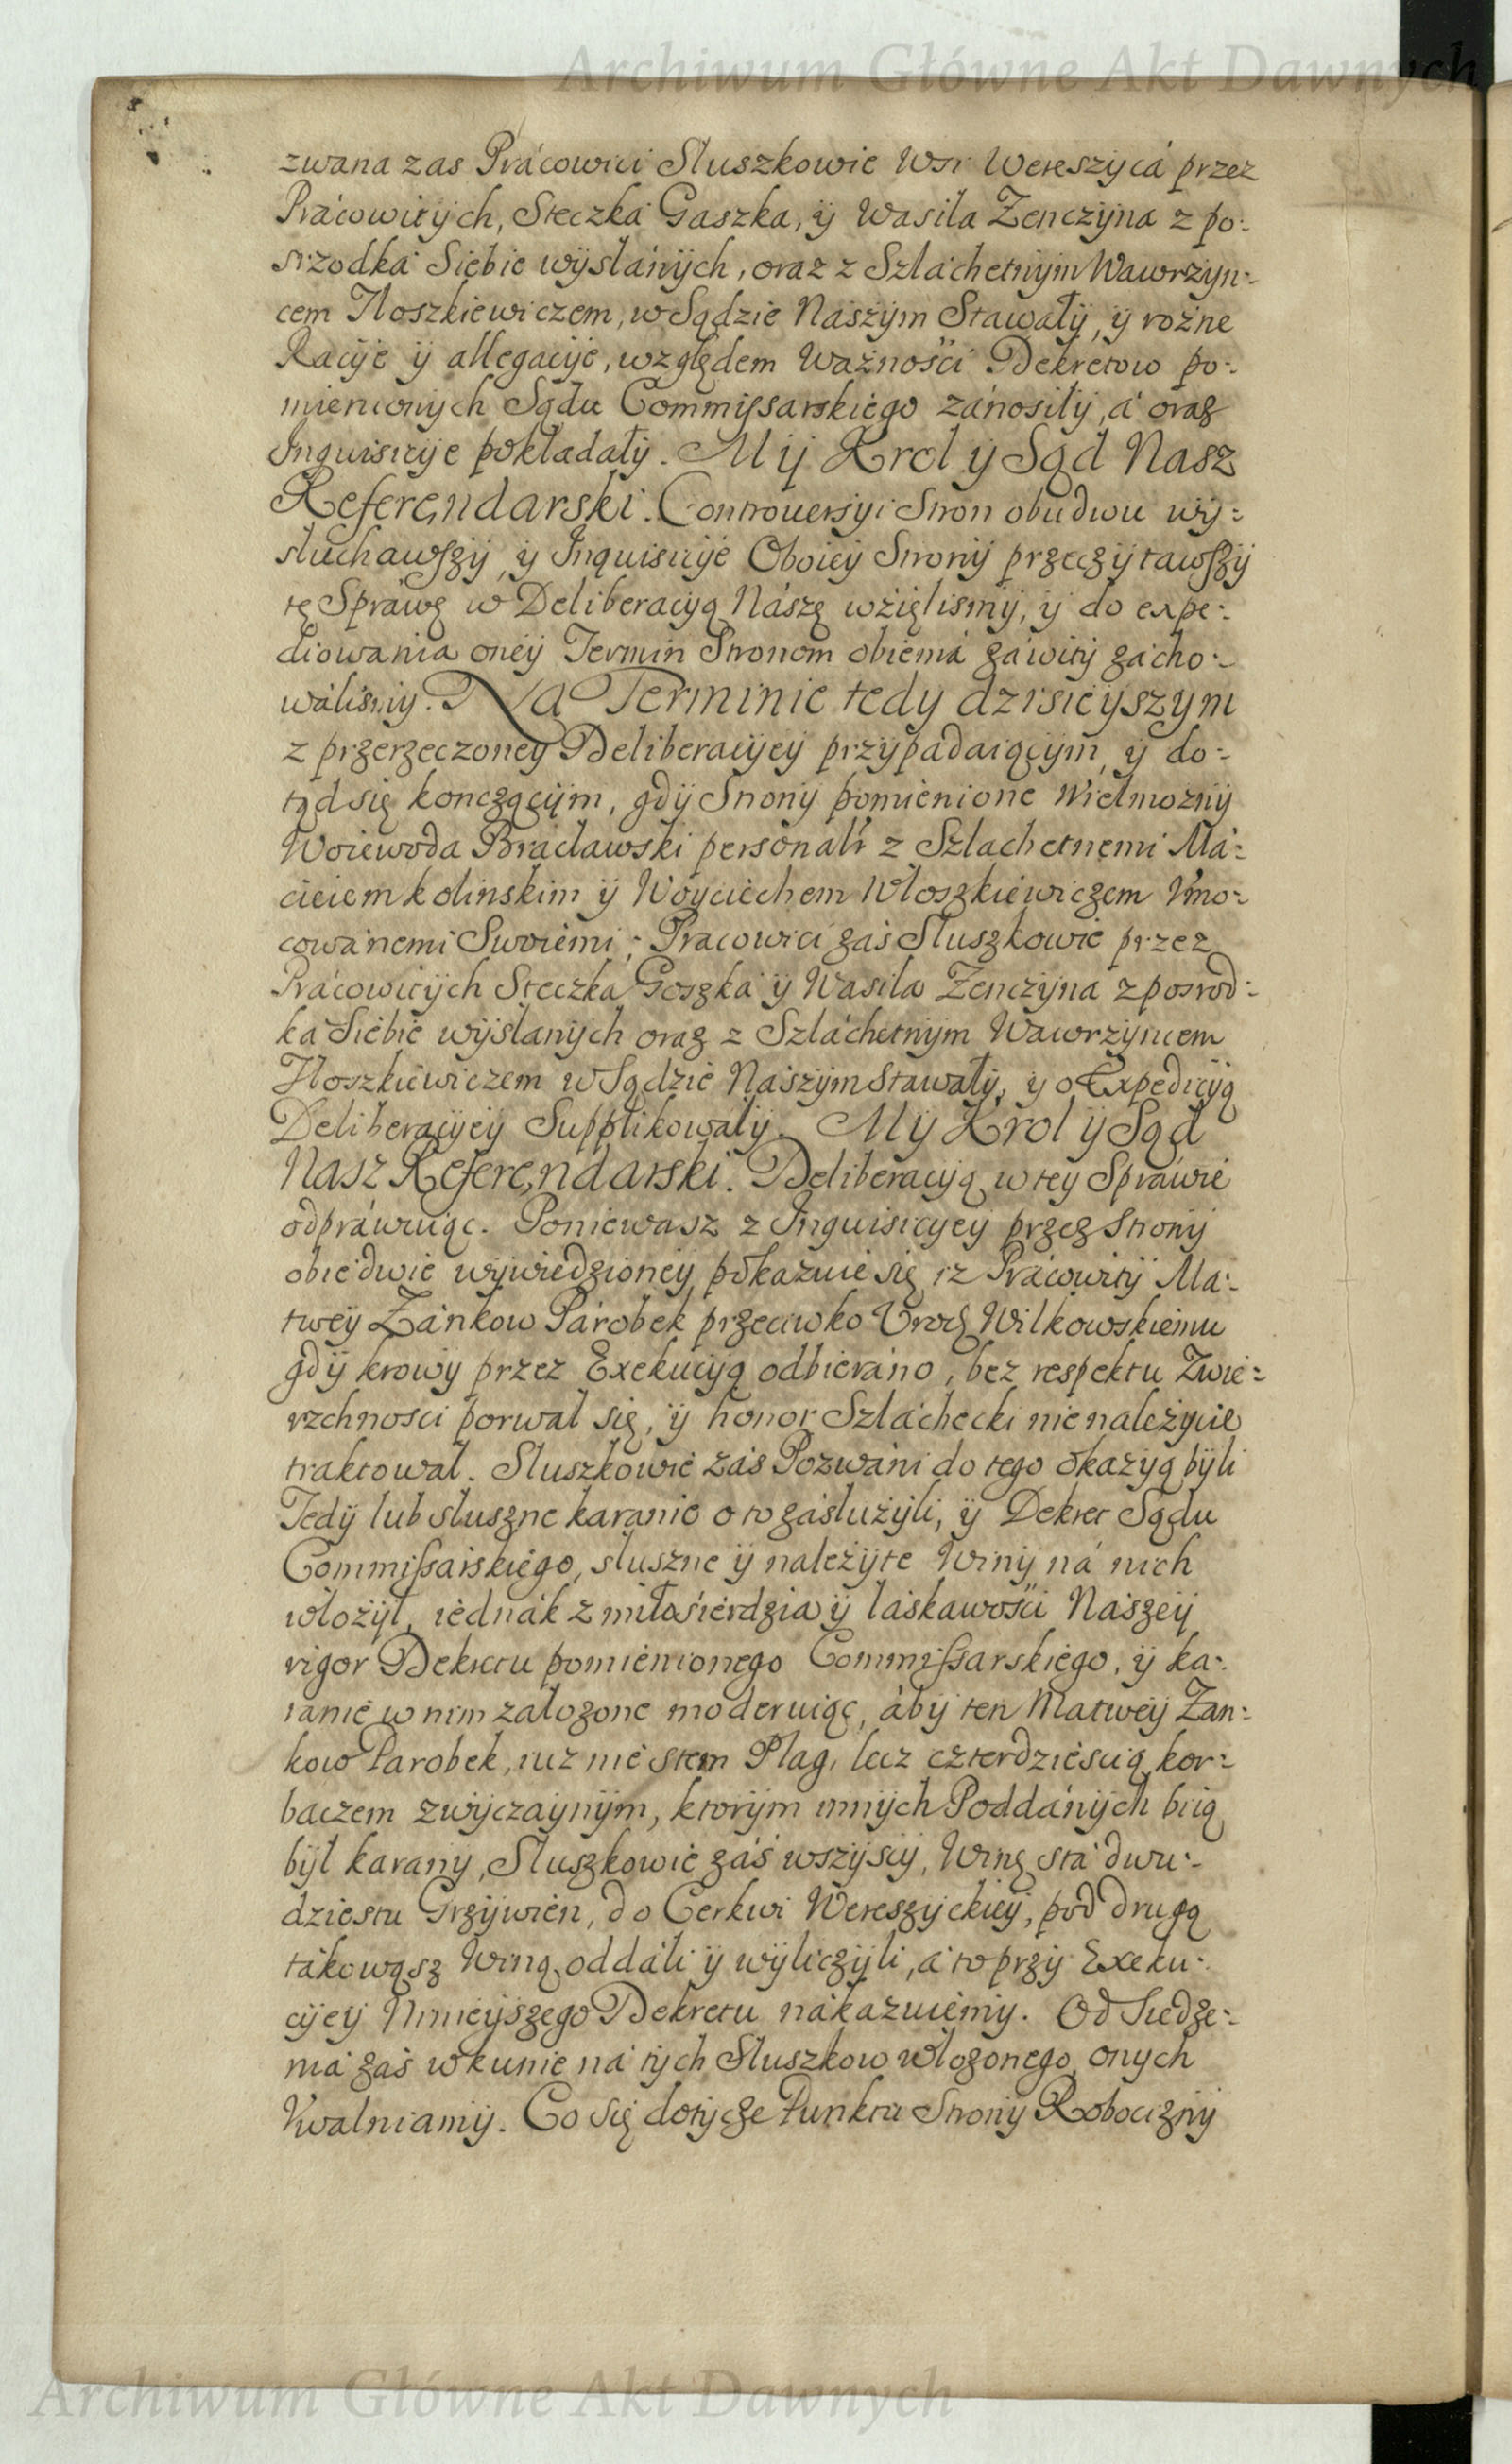 Archiwum Główne Akt Dawnych
zwana zas Prácowici Sluszkowie Wsi Wereszycá przez
Prácowitych, Steczká Gaszka, ÿ Wasila Zenczyna z po-
srzodká Siebie wÿsłánÿch, oraz z Szláchetnÿm Wawrzÿn-
cem Iloszkiewiczem, w Sądzie Nászÿm Stawałÿ, ÿ rożne
Racÿje ÿ allegacÿje, względem Ważnosci Dekretow po-
mienionÿch Sądu Commissarskiego zánosilÿ, á oraz
Inquisicÿje pokładałÿ. Mÿ Krol ÿ Sąd Nasz
Referendarski. Controversÿi Stron obudwu wÿ-
słuchawszÿ, ÿ Inquisicÿje Oboieÿ Stronÿ przeczÿtawszÿ
tę Spráwę w Deliberacÿą Nászę wzięlismÿ, ÿ do expe-
diowania oneÿ Termin Stronom obiema záwitÿ zácho-
wálismÿ. Na Terminie tedy dzisieyszym
z przerzeczoneÿ Deliberacÿeÿ przÿpadaiącÿm, ÿ do-
tąd się konczącÿm, gdÿ Stronÿ pomienione Wielmoznÿ
Woiewoda Bracławski personalr z Szlachetnemi Má-
cieiem kolinskim ÿ Woÿciechem Włoszkiewiczem Vmo-
cowánemi Swoiemi; Pracowici zaś Sluszkowie przez
Prácowitÿch Steczka Goszká ÿ Wasila Zenczÿna z posrod-
ka Siebie wÿsłanÿch oraz z Szláchetnÿm Wawrzÿncem
Iloszkiewiczem w Sądzie Naszÿm stawałÿ, ÿ o Expedicÿą
Deliberacÿeÿ Supplikowalÿ. Mÿ Krol ÿ Sąd
Nasz Referendarski. Deliberacÿą w teÿ Spráwie
odpráwuiąc. Poniewasz z Inquisicÿeÿ przez Stronÿ
obiedwie wÿwiedzioneÿ, pokazuie się iz Prácowitÿ Má-
tweÿ Zánkow Párobek przeciwko Vrodz Wilkowskiemu
gdÿ krowÿ przez Exekucÿą odbieráno, bez respektu Zwie-
rzchnosci porwał się, ÿ honor Szláchecki nienależÿcie
traktował. Sluszkowie zás Pozwáni do tego okazÿą bÿli
Tedÿ lub sluszne karanie o to zásłużÿli, ÿ Dekret Sądu
Commissarskiego, sluszne ÿ należÿte Winÿ ná nich
włożÿł, iednák z miłosierdzia ÿ láskawosci Nászeÿ
rigor Dekretu pomienionego Commissarskiego, ÿ ka-
ranie w nim założone moderuiąc, ábÿ ten Matweÿ Zan-
kow Parobek, iuz nie stem Plag, lecz czterdziescią kor-
baczem zwÿczaÿnÿm, ktorÿm innÿch Poddánÿch biią
bÿł karany, Sluszkowie záś wszÿscÿ, Winę stá dwu-
dziestu Grzÿwien, do Cerkwi Wereszÿckieÿ, pod drugą
tákowąsz Winą oddáli ÿ wÿliczÿli, á to przÿ Exeku-
cÿeÿ Ninieÿszego Dekretu nákazuiemÿ. Od Siedze-
niá zaś w kunie ná tÿch Sluszkow włozonego, onych
Vwalniamÿ. Co się dotÿcze Punktu Stronÿ Robociznÿ
Archiwum Główne Akt Dawnych